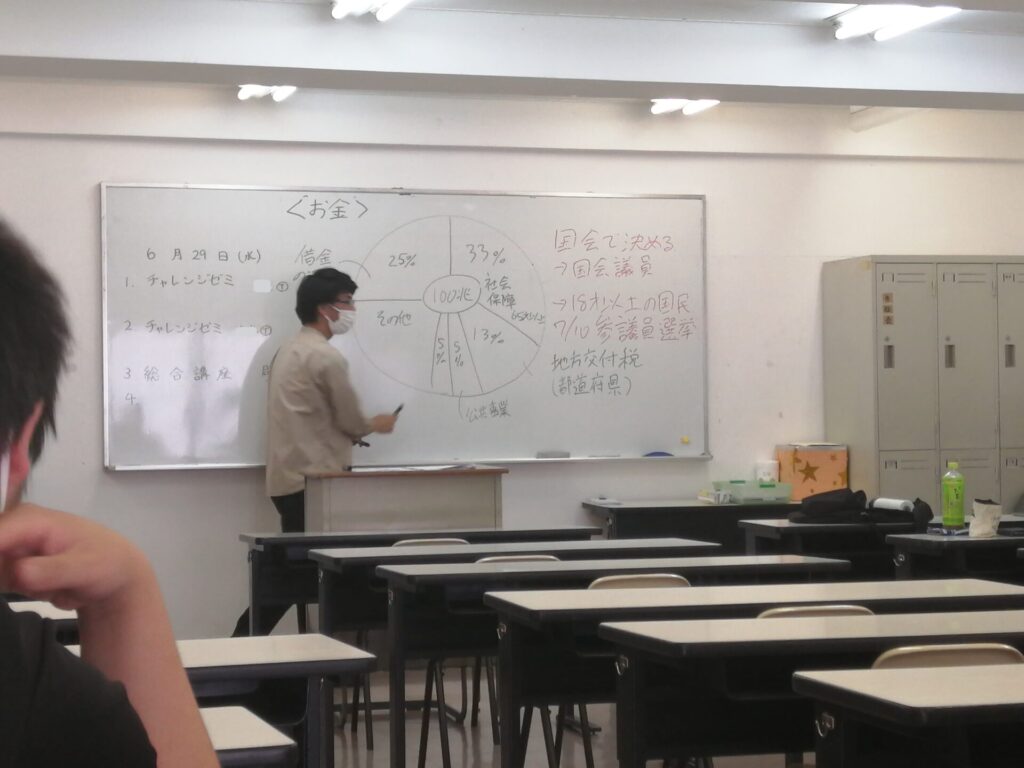 〈お金〉
6月29日(水)
1. チャレンジゼミ
2 チャレンジゼミ
3 総合講座
4.
借金
25%
33%
社会
保障
65才以上
100兆
その他
5%
5%
13%
公共事業
国会で決める
→国会議員
→18才以上の国民
7/10 参議員選挙
地方交付税
(都道府県)